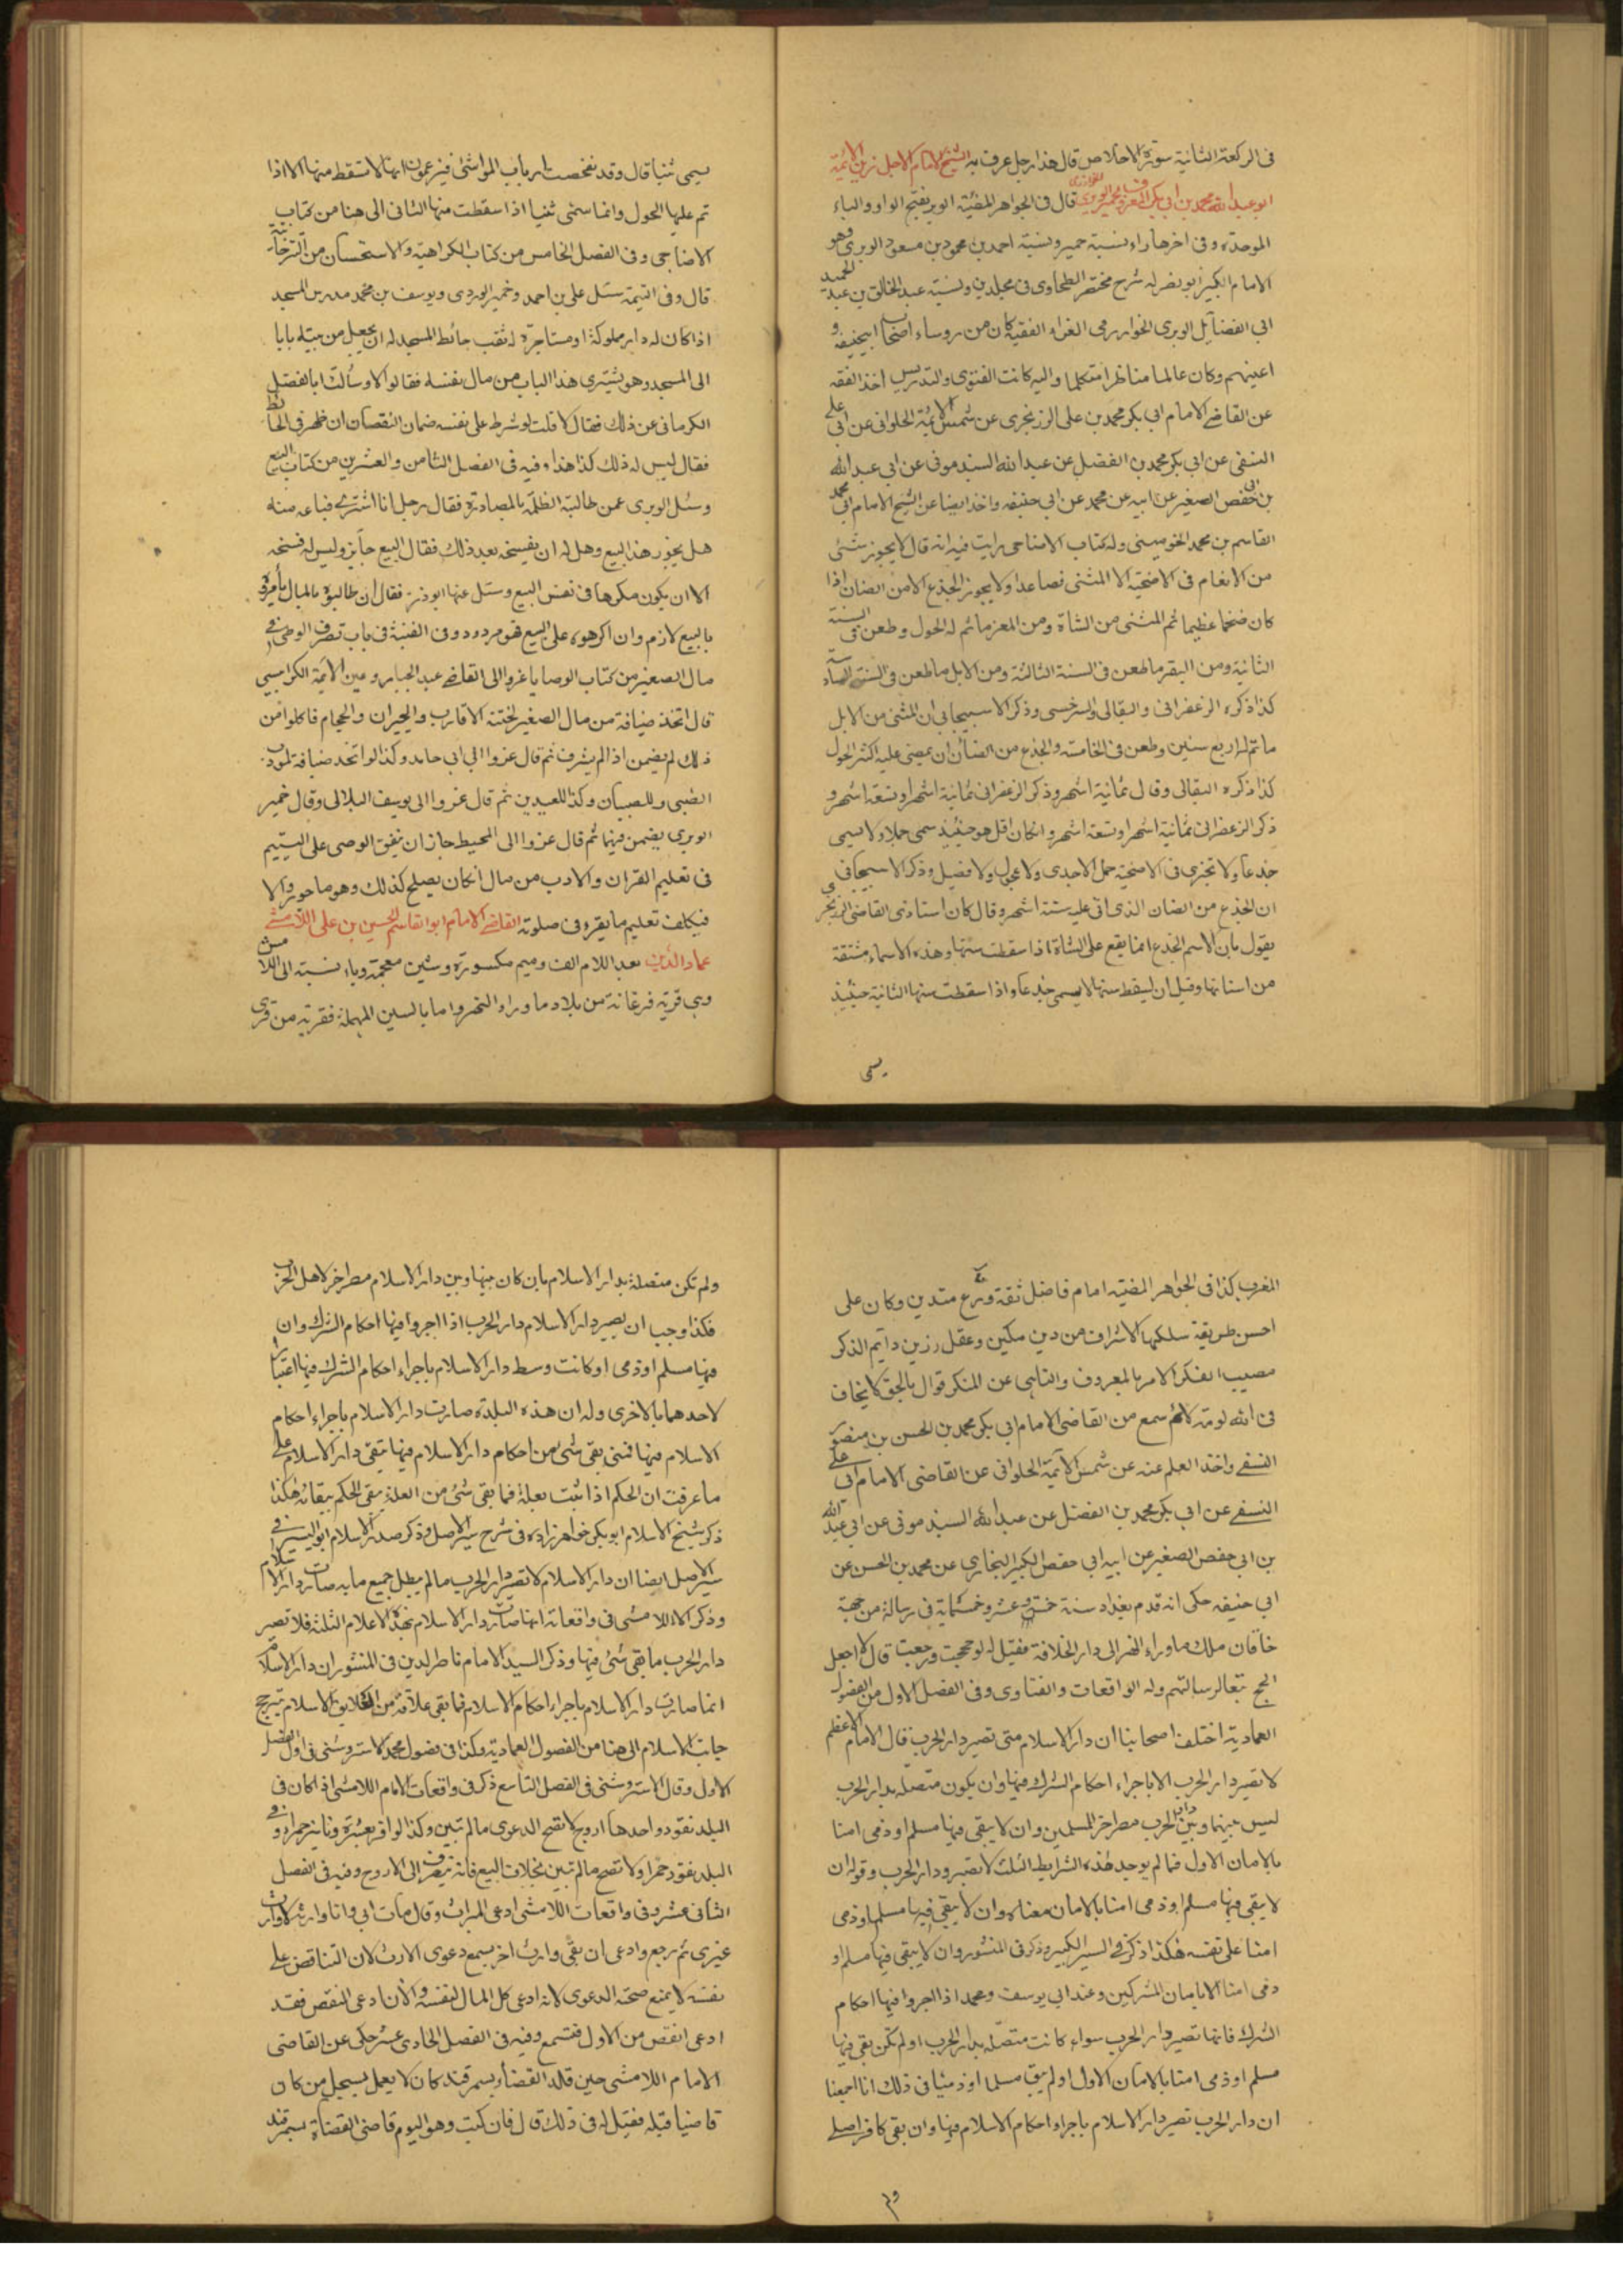 في الركعة الثانية سورة الاخلاص قال هذا رجل عرف به الشيخ الامام الاجل زين الائمة
ابو عبد الله محمد بن ابي بكر المعروف بخمير الوبري الخوارزمي قال في الجواهر المضيئة الوبر بفتح الواو والباء
الموحدة وفي اخرها راء نسبة خمير ونسبة احمد بن محمود بن مسعود الوبري وهو
الامام الكبير ابو نصر له شرح مختصر الطحاوي في مجلدين ونسبة عبد الخالق بن عبد الحميد
ابي الفضائل الوبري الخوارزمي الفقيه كان من روساء اصحاب ابي حنيفة و
اعينهم وكان عالما مناظرا متكلما واليه كانت الفتوى والتدريس اخذ الفقه
عن القاضي الامام ابي بكر محمد بن علي الزرنجري عن شمس الائمة الحلواني عن ابي علي
النسفي عن ابي بكر محمد بن الفضل عن عبد الله السبذموني عن ابي عبد الله
بن ابي حفص الصغير عن ابيه عن محمد عن ابي حنيفه واخذ ايضا عن الشيخ الامام ابي محمد
القاسم بن محمد وله كتاب الاضاحي رايت فيه انه قال لا يجوز شئ
من الانعام في الاضحية الا المثنى فصاعدا ولا يجوز الجذع الا من الضان اذا
كان ضخما عظيما ثم المثنى من الشاة ومن المعز ما تم له الحول وطعن في السنة
الثانية ومن البقر ما طعن في السنة الثالثة ومن الابل ما طعن في السنة السادسة
كذا ذكره الزعفراني والبقالي والسرخسي وذكر الاسبيجابي ان المثنى من الابل
ما تم له اربع سنين وطعن في الخامسة والجذع من الضان ان يمضي عليه اكثر الحول
كذا ذكره البقالي وقال ثمانية اشهر وذكر الزعفراني ثمانية اشهر او تسعة اشهر و
ذكر الزعفراني ثمانية اشهر او تسعة اشهر وانكان اقل هو حينئذ سمي حملا ولا يسمى
جذعا ولا تجزى في الاضحية حمل الاجدي ولا عجول ولا فصيل وذكر الاسبيجابي
ان الجذع من الضان الذي اتى عليه ستة اشهر وقال كان استاذي القاضي الزرنجري
يقول بان الاسم الجذع انما يقع على الشاة اذا سقطت سنها وهذه الاسماء مشتقة
من اسنانها وقبل ان يسقط سنها لا يسمى جذعا واذا سقطت سنها الثانية حينئذ
يسمى
يسمى ثنيا قال وقد تفحصت ارباب المواشي فيزعمون انها لا تسقط منها الا اذا
تم عليها الحول وانما سمى ثنيا اذا سقطت منها الثاني الى هنا من كتاب
الاضاحي وفي الفصل الخامس من كتاب الكراهية والاستحسان من التتارخانية
قال وفي اليتيمة سئل علي بن احمد وخمير الوبري ويوسف بن محمد مدرس المسجد
اذا كان له دار مملوكة او مستاجرة له ثقب حائط المسجد له ان يجعل من بيته بابا
الى المسجد وهو يشتري هذا الباب من مال نفسه فقالوا لا وسألت ابا الفضل
الكرماني عن ذلك فقال لا قلت لو شرط على نفسه ضمان النقصان ان ظهر في الحائط
فقال ليس له ذلك كذا هذا وفيه في الفصل الثامن والعشرين من كتاب البيع
وسئل الوبري عمن طالبته الظلمة بالمصادرة فقال رجل انا اشتري فباعه منه
هل يجوز هذا البيع وهل له ان يفسخه بعد ذلك فقال البيع جائز وليس له فسخه
الا ان يكون مكرها في نفس البيع وسئل عنها ابو ذر فقال ان طالبوه بالمال فأمروه
بالبيع لازم وان اكرهوه على البيع فهو مردود وفي القنية في باب تصرف الوصي في
مال الصغير من كتاب الوصايا عزوا الى القاضي عبد الجبار وعين الائمة الكرابيسي
قال اتخذ ضيافة من مال الصغير لختنه الاقارب والجيران والحجام فاكلوا من
ذلك لم يضمن اذا لم يشرف ثم قال عزوا الى ابي حامد وكذا لو اتخذ ضيافة لمؤدب
الصبي وللصبيان وكذا للعيدين ثم قال عزوا الى يوسف البلالي وقال خمير
الوبري يضمن فيهما ثم قال عزوا الى المحيط جاز ان ينفق الوصي على اليتيم
في تعليم القران والادب من مال انكان يصلح كذلك وهو ماجور والا
فيكلف تعليم ما يقرء في صلوته القاضي الامام ابو القاسم الحسين بن علي اللامشي
عماد الدين بعد اللام الف وميم مكسورة وشين معجمة وياء نسبة الى اللامش
وهي قرية فرغانة من بلاد ما وراء النهر واما بالسين المهملة فقرية من قرى
المغرب كذا في الجواهر المضيه امام فاضل ثقة ورع متدين وكان على
احسن طريقة سلكها الاشراف من دين مكين وعقل رزين دايم الذكر
مصيب الفكر الامر بالمعروف والناهي عن المنكر قوال بالحق لا يخاف
في الله لومة لائم سمع من القاضي الامام ابي بكر محمد بن الحسن بن منصور
النسفي واخذ العلم عنه عن شمس الائمة الحلواني عن القاضي الامام ابي علي
النسفي عن ابي بكر محمد بن الفضل عن عبد الله السبذموني عن ابي عبد الله
بن ابي حفص الصغير عن ابيه ابي حفص الكبير البخاري عن محمد بن الحسن عن
ابي حنيفه حكى انه قدم بغداد سنة خمس عشر وخمسمائة في رسالة من جهة
خاقان ملك ما وراء النهر الى دار الخلافة فقيل له لو حججت ورجعت قال لا اجعل
الحج تبعا لرسالتهم وله الواقعات والفتاوى وفي الفصل الاول من الفصول
العمادية اختلف اصحابنا ان دار الاسلام متى تصير دار الحرب فقال الامام الاعظم
لا تصير دار الحرب الا باجراء احكام الشرك فيها وان يكون متصلة بدار الحرب
ليس بينها وبين دار الحرب مصر اخر للمسلمين وان لا يبقى فيها مسلم او ذمي امنا
بالامان الاول فما لم يوجد هذه الشرايط الثلث لا تصير دار الحرب وقوله ان
لا يبقى فيها مسلم او ذمي امنا بالامان معناه وان لا يبقى فيها مسلم او ذمي
امنا على نفسه هكذا ذكر في السير الكبير وذكر في المنشور وان لا يبقى فيها مسلم او
ذمي امنا الا بامان المشركين وعند ابي يوسف ومحمد اذا اجروا فيها احكام
الشرك فانها تصير دار الحرب سواء كانت متصلة بدار الحرب او لم تكن بقى فيها
مسلم او ذمي امنا بالامان الاول او لم يبق مسلما او ذميا في ذلك انا اجمعنا
ان دار الحرب تصير دار الاسلام باجراء احكام الاسلام فيها وان بقى كافر اصلي
ولم
ولم تكن متصلة بدار الاسلام بان كان بينها وبين دار الاسلام مصر اخر لاهل الحرب
فكذا وجب ان يصير دار الاسلام دار الحرب اذا اجروا فيها احكام الشرك وان
فيها مسلم او ذمي او كانت وسط دار الاسلام باجراء احكام الشرك فيها اعتبارا
لاحدهما بالاخرى وله ان هذه البلدة صارت دار الاسلام باجراء احكام
الاسلام فيها فمتى بقى شئ من احكام دار الاسلام فيها تبقى دار الاسلام على
ما عرفت ان الحكم اذا ثبت بعلة فما بقى شئ من العلة يبقى الحكم ببقائه هكذا
ذكر شيخ الاسلام ابو بكر خواهر زاده في شرح سير الاصل وذكر صدر الاسلام ابو اليسر في
سير الاصل ايضا ان دار الاسلام لا تصير دار الحرب ما لم يبطل جميع ما به صارت دار الاسلام
وذكر اللامشي في واقعاته انها صارت دار الاسلام بهذه الاعلام الثلثة فلا تصير
دار الحرب ما بقى شئ فيها وذكر السيد الامام ناصر الدين في المنشور ان دار الاسلام
انما صارت دار الاسلام باجراء احكام الاسلام فما بقى علاقة من علايق الاسلام يترجح
جانب الاسلام الى هنا من الفصول العمادية وهكذا في فصول محمد الاستروشني في اول الفصل
الاول وقال الاستروشني في الفصل التاسع ذكر في واقعات الامام اللامشي اذا كان في
البلد نقود واحدها اروج لا تصح الدعوى ما لم تبين وكذا لو اقر بعشرة دنانير حمراء وفي
البلد نقود حمراء ولا تصح ما لم تبين بخلاف البيع فانه يتصرف الى الاروج وفيه في الفصل
الثاني عشر وفي واقعات اللامشي ادعى الميراث وقال مات ابي وانا وارثه لا وارث
غيري ثم رجع وادعى ان بقي وارث اخر يسمع دعوى الارث لان التناقض على
نفسه لا يمنع صحة الدعوى لانه ادعى كل المال لنفسه والان ادعى النقص فقد
ادعى انقص من الاول فتسمع وفيه في الفصل الحادي عشر حكى عن القاضي
الامام اللامشي حين قلد القضاء بسمرقند كان لا يعمل بسجل من كان
قاضيا قبله فقيل له في ذلك قال فان كيت وهو اليوم قاضي القضاة بسمرقند